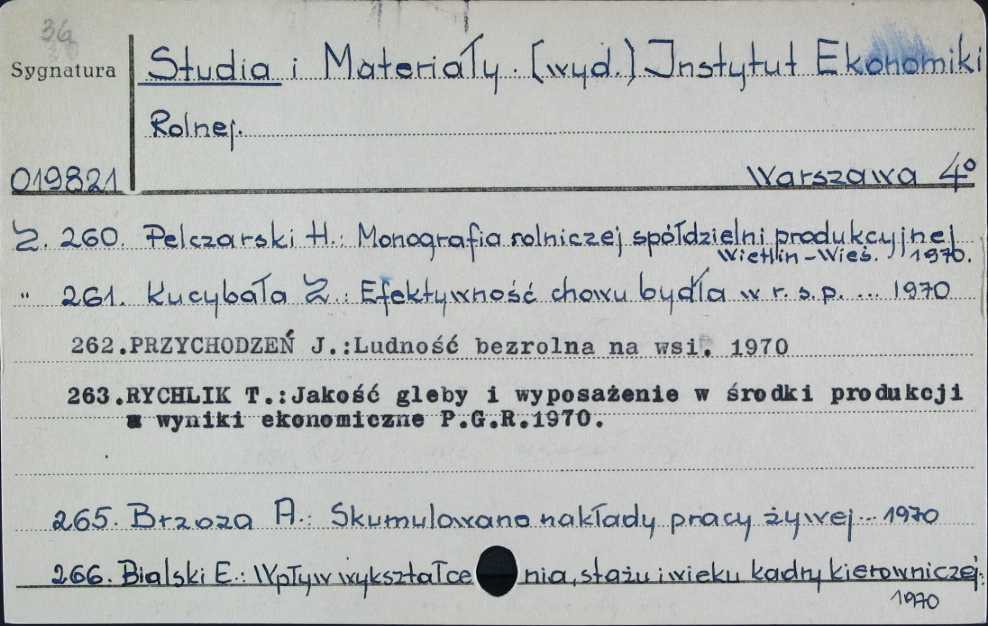 36
Sygnatura
Studia i Materiały. [wyd.] Instytut Ekonomiki
Rolnej.
019821
Warszawa 4°
Z. 260. Pelczarski H.: Monografia rolniczej spółdzielni produkcyjnej
Wietlin-Wieś. 1970.
" 261. Kucybała Z.: Efektywność chowu bydła w r. s. p. ... 1970
262.PRZYCHODZEŃ J.:Ludność bezrolna na wsi. 1970
263.RYCHLIK T.:Jakość gleby i wyposażenie w środki produkcji
a wyniki ekonomiczne P.G.R.1970.
265. Brzoza A.: Skumulowane nakłady pracy żywej... 1970
266. Bialski E.: Wpływ wykształcenia, stażu i wieku kadry kierowniczej.
1970